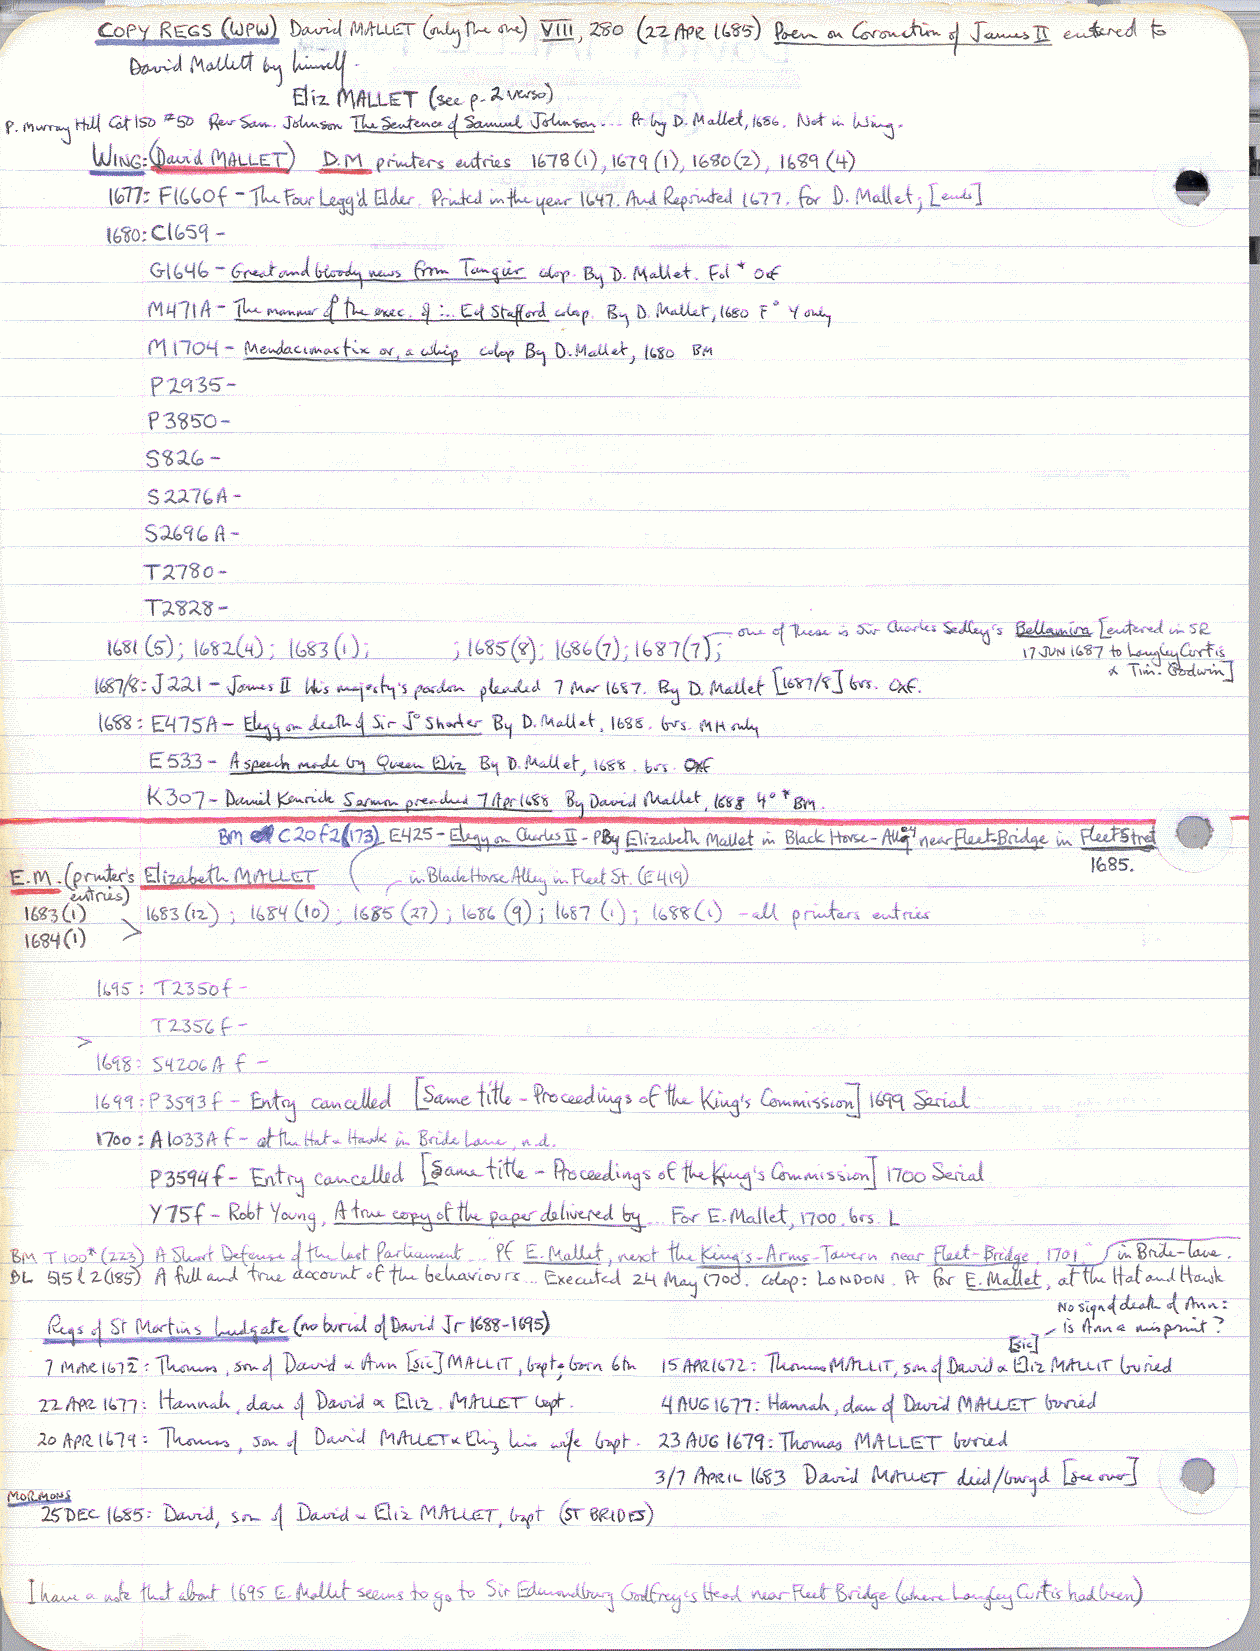 COPY REGS (WPW) David MALLET (only the one) VIII, 280 (22 APR 1685) Poem on Coronation of James II entered to
David Mallett by himself.
Eliz MALLET (see p. 2 verso)
P. Murray Hill Cat 150 #50 Rev Sam. Johnson The Sentence of Samuel Johnson... Pr by D. Mallet, 1686. Not in Wing.
WING: (David MALLET) D.M printers entries 1678(1), 1679(1), 1680(2), 1689(4)
1677: F1660f - The Four Legg'd Elder. Printed in the year 1647. And Reprinted 1677. for D. Mallet; [ends]
1680: C1659 -
G1646 - Great and bloody news from Tangier colop. By D. Mallet. Fol * Oxf
M471A - The manner of the exec. of :.. Ed Stafford colop. By D. Mallet, 1680 F° Y only
M1704 - Mendacimastix or, a whip colop By D. Mallet, 1680 BM
P2935 -
P3850 -
S826 -
S2276A -
S2696A -
T2780 -
T2828 -
1681(5); 1682(4); 1683(1); ; 1685(8); 1686(7); 1687(7); one of these is Sir Charles Sedley's Bellamira [entered in SR
17 JUN 1687 to Langley Curtis
& Tim. Goodwin]
1687/8: J221 - James II His majesty's pardon pleaded 7 Mar 1687. By D. Mallet [1687/8] brs. Oxf.
1688: E475A - Elegy on death of Sir J° Shorter By D. Mallet, 1688. brs. MH only
E533 - A speech made by Queen Eliz By D. Mallet, 1688. brs. Oxf
K307 - Daniel Kenrick Sermon preached 7 Apr 1688 By David Mallet, 1688 4° * BM.
BM C20f2(173) E425 - Elegy on Charles II - By Elizabeth Mallet in Black Horse-Alley near Fleet-Bridge in FleetStreet
1685.
E.M. (printer's entries) Elizabeth MALLET in Black Horse Alley in Fleet St. (E419)
1683(1) 1683(12); 1684(10); 1685(27); 1686(9); 1687(1); 1688(1) - all printers entries
1684(1) >
1695: T2350f -
T2356f -
>
1698: S4206A f -
1699: P3593f - Entry cancelled [Same title - Proceedings of the King's Commission] 1699 Serial
1700: A1033A f - at the Hat & Hawk in Bride Lane, n.d.
P3594f - Entry cancelled [Same title - Proceedings of the King's Commission] 1700 Serial
Y75f - Robt Young, A true copy of the paper delivered by... For E. Mallet, 1700. brs. L
BM T100*(223) A Short Defense of the last Parliament... Pf E. Mallet, next the King's-Arms-Tavern near Fleet-Bridge, 1701 in Bride-lane.
BL 515 l 2 (185) A full and true account of the behaviours... Executed 24 May 1700. colop: LONDON. Pr for E. Mallet, at the Hat and Hawk
No sign of death of Ann:
is Ann a misprint?
Regs of St Martins Ludgate (no burial of David Jr 1688-1695)
[sic]
7 MAR 1672: Thomas, son of David & Ann [sic] MALLIT, bapt; born 6th 15 APR 1672: Thomas MALLIT, son of David & Eliz MALLIT buried
22 APR 1677: Hannah, dau of David & Eliz. MALLET bapt. 4 AUG 1677: Hannah, dau of David MALLET buried
20 APR 1679: Thomas, son of David MALLET & Eliz his wife bapt. 23 AUG 1679: Thomas MALLET buried
3/7 APRIL 1683 David MALLET died/buryd [see over]
MORMONS
25 DEC 1685: David, son of David & Eliz MALLET, bapt (ST BRIDES)
I have a note that about 1695 E. Mallet seems to go to Sir Edmondbury Godfrey's Head near Fleet Bridge (where Langley Curtis had been)